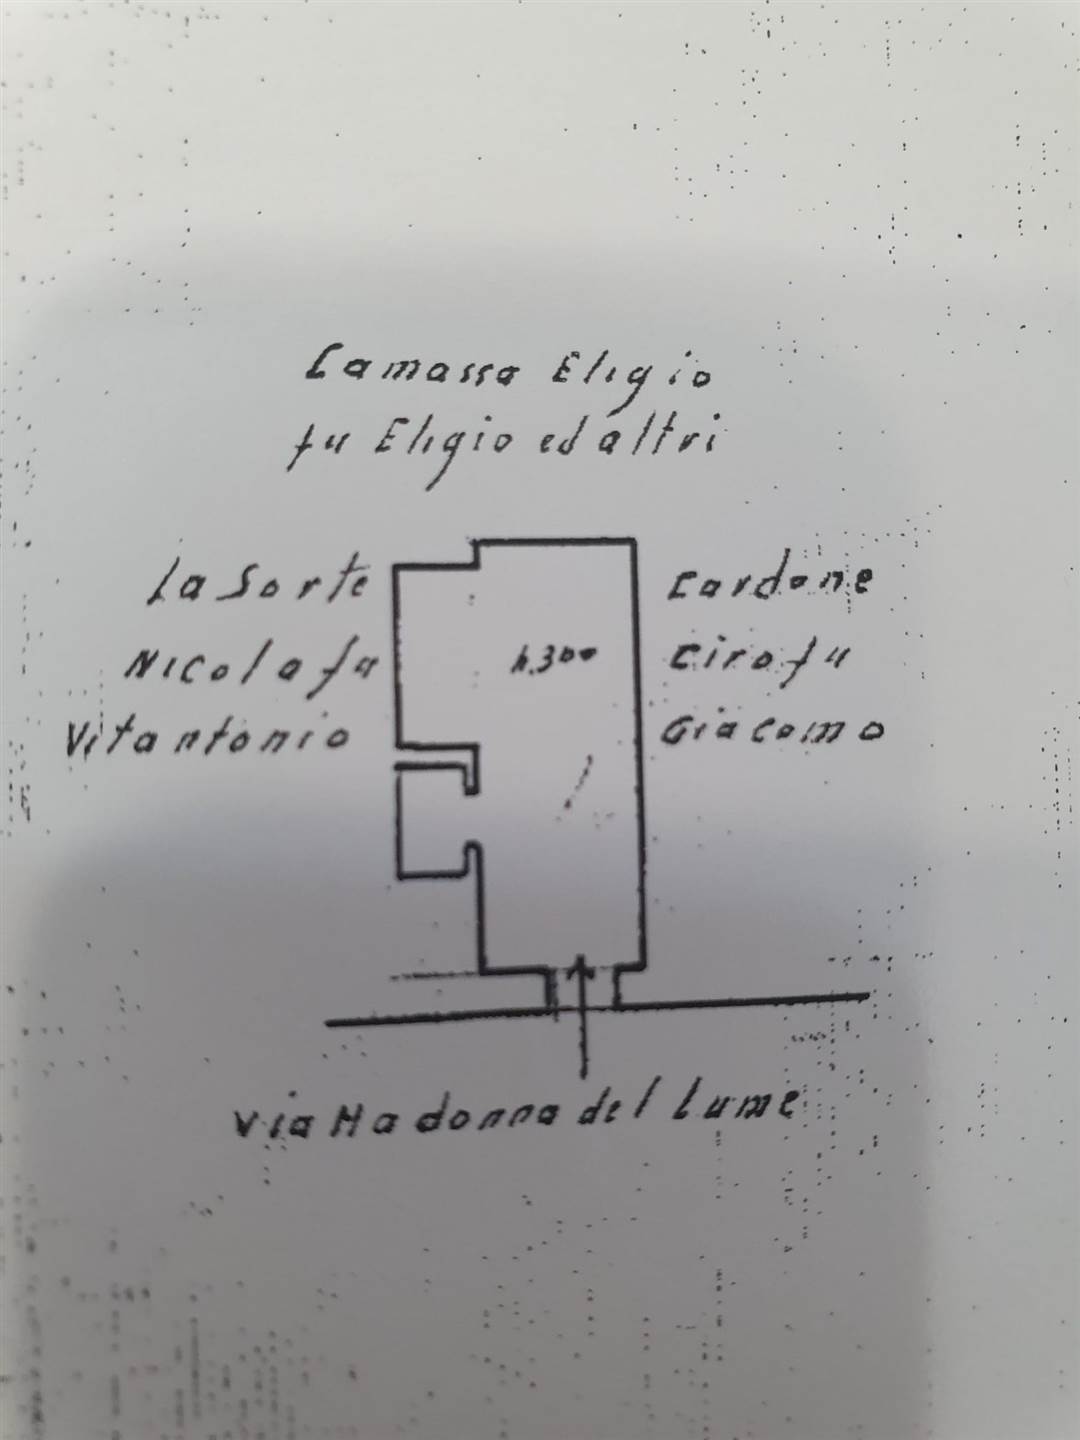 Lamassa Eligio
fu Eligio ed altri
La Sorte
Nicola fu
Vitantonio
h.300
Cardone
Ciro fu
Giacomo
Via Madonna del Lume